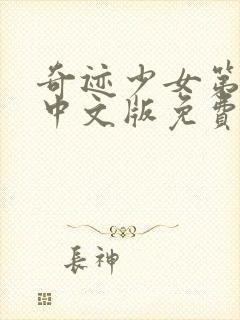 奇迹少女第
中文版免費
長神